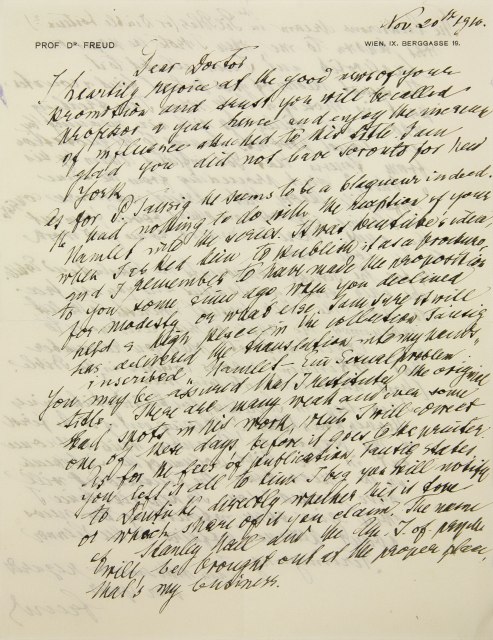 Nov. 20th 1910.
PROF. DR. FREUD
WIEN, IX. BERGGASSE 19.
Dear Doctor
I heartily rejoice at the good news of your
promotion and trust you will be called
Professor a year hence and enjoy the increase
of influence attached to this title. I am
glad you did not leave Toronto for New
York.
As for P. Tausig he seems to be a blagueur indeed.
He had nothing to do with the reception of your
Hamlet into the series. It was Deuticke's idea,
when I asked him to publish it as a brochure,
and I remember to have made the proposition
to you some time ago when you declined
for modesty or what else. I am sure it will
hold a high place in the collection. Tausig
has delivered the translation into my hands,
inscribed "Hamlet – Ein Sexualproblem".
You may be assured that I restituted the original
title. There are many weak and even some
bad spots in his work, this I will correct
one of these days, before it goes to the printer.
As for the fees of publication, Tausig states,
you left it all to him. I beg you will notify
to Deuticke directly whether this is true
or which share of it you claim. The name
of Stanley Hall and the Am. J. of psych.
will be brought out at the proper place,
that's my business.